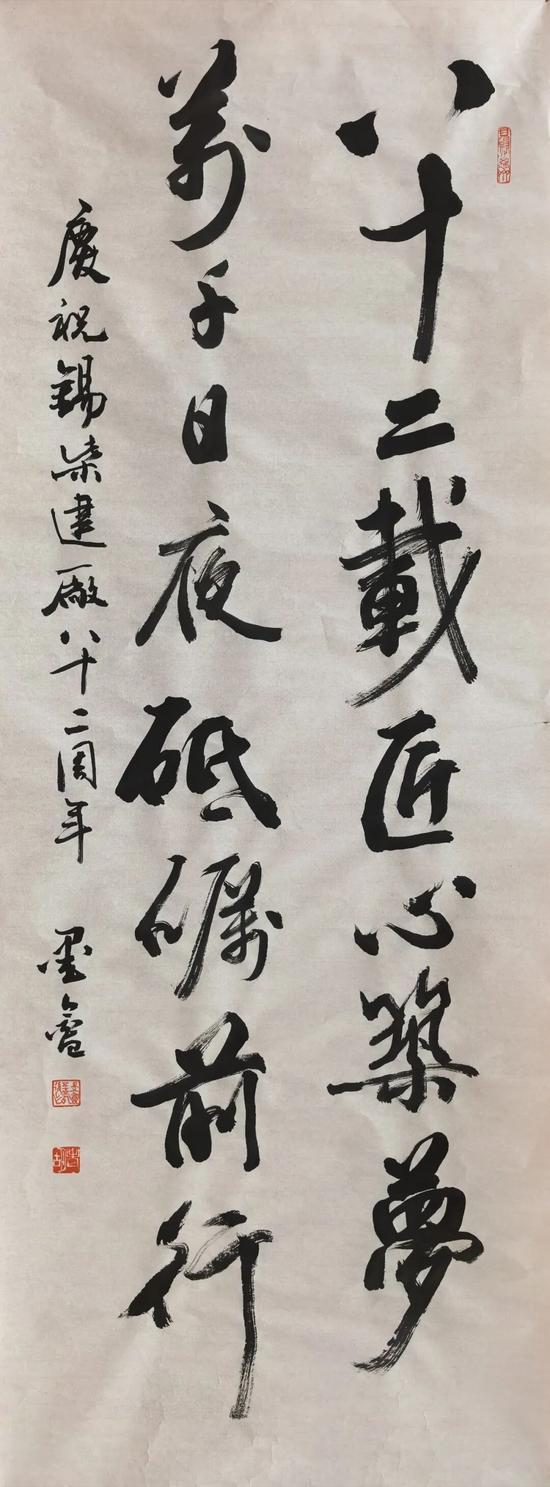 八十二載匠心築夢
萬千日夜砥礪前行
慶祝錫柴建廠八十二周年
墨